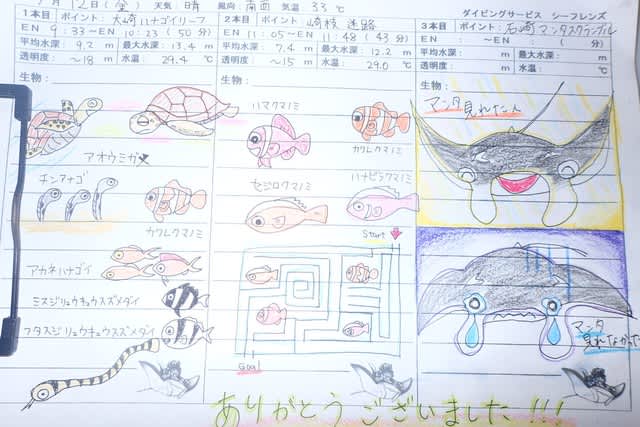 月12日(金) 天気 晴 風向 南西 気温 33℃
ダイビングサービス シーフレンズ
1本目 ポイント: 大崎ハナゴイリーフ
EN 9:33~EN 10:23 (50分)
平均水深: 9.2 m 最大水深: 13.4 m
透明度: ~18 m 水温: 29.4 ℃
生物:
アオウミガメ
チンアナゴ
カクレクマノミ
アカネハナゴイ
ミスジリュウキュウスズメダイ
フタスジリュウキュウスズメダイ
2本目 ポイント: 崎枝 迷路
EN 11:05~EN 11:48 (43分)
平均水深: 7.4 m 最大水深: 12.2 m
透明度: ~15 m 水温: 29.0 ℃
生物:
ハマクマノミ
カクレクマノミ
セジロクマノミ
ハナビラクマノミ
Start
Goal
3本目 ポイント: 石崎マンタスクランブル
EN : ~EN : ( 分)
平均水深: m 最大水深: m
透明度: m 水温: ℃
生物:
マンタ見れた人
マンタ
見れなかった
ありがとうございました!!!